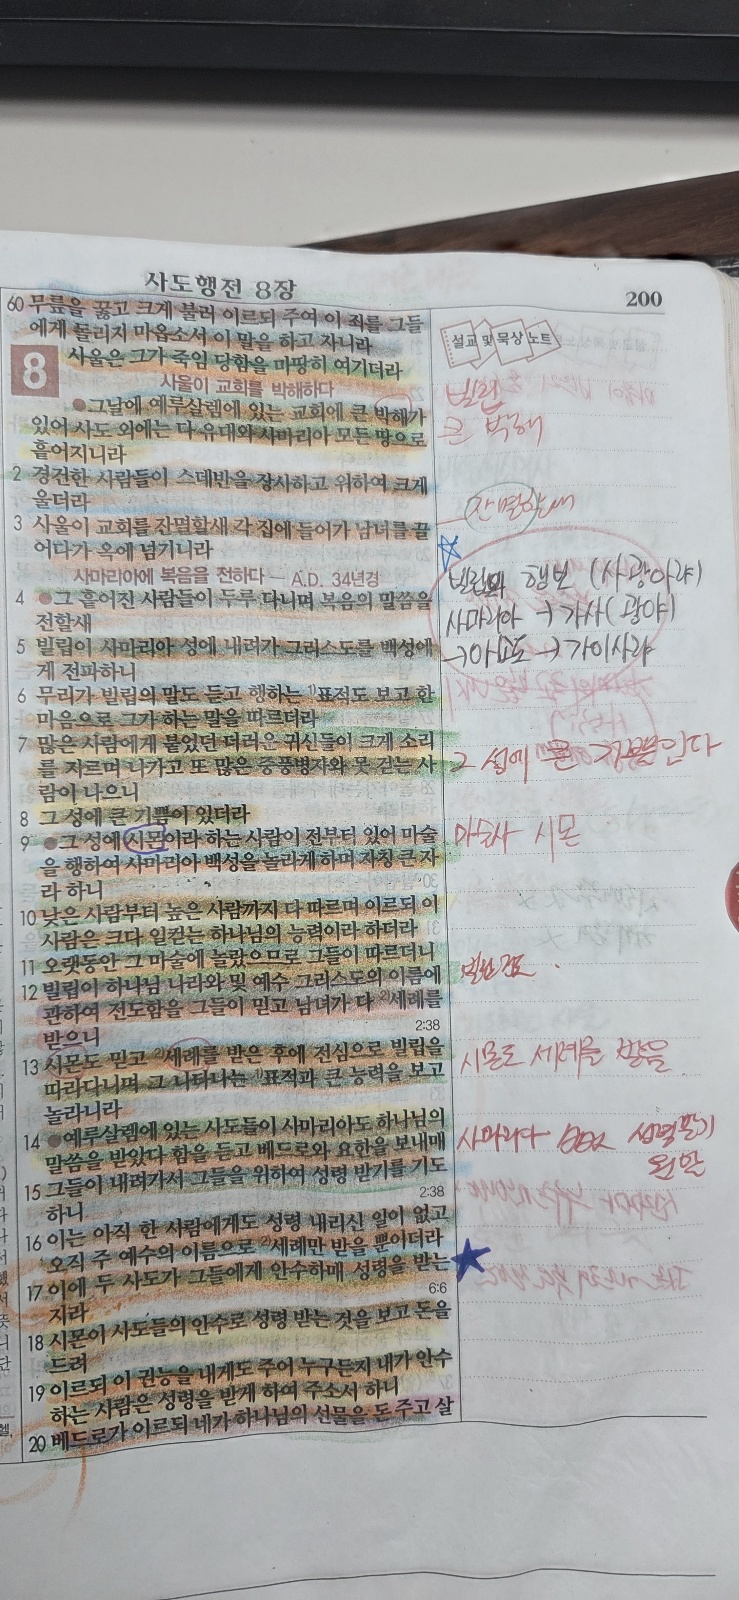 사도행전 8장
200
60 무릎을 꿇고 크게 불러 이르되 주여 이 죄를 그들
에게 돌리지 마옵소서 이 말을 하고 자니라
8 사울은 그가 죽임 당함을 마땅히 여기더라
사울이 교회를 박해하다
●그날에 예루살렘에 있는 교회에 큰 박해가
있어 사도 외에는 다 유대와 사마리아 모든 땅으로
흩어지니라
2 경건한 사람들이 스데반을 장사하고 위하여 크게
울더라
3 사울이 교회를 잔멸할새 각 집에 들어가 남녀를 끌
어다가 옥에 넘기니라
사마리아에 복음을 전하다 — A.D. 34년경
4 ●그 흩어진 사람들이 두루 다니며 복음의 말씀을
전할새
5 빌립이 사마리아 성에 내려가 그리스도를 백성에
게 전파하니
6 무리가 빌립의 말도 듣고 행하는 1)표적도 보고 한
마음으로 그가 하는 말을 따르더라
7 많은 사람에게 붙었던 더러운 귀신들이 크게 소리
를 지르며 나가고 또 많은 중풍병자와 못 걷는 사
람이 나으니
8 그 성에 큰 기쁨이 있더라
9 ●그 성에 시몬이라 하는 사람이 전부터 있어 마술
을 행하여 사마리아 백성을 놀라게 하며 자칭 큰 자
라 하니
10 낮은 사람부터 높은 사람까지 다 따르며 이르되 이
사람은 크다 일컫는 하나님의 능력이라 하더라
11 오랫동안 그 마술에 놀랐으므로 그들이 따르더니
12 빌립이 하나님 나라와 및 예수 그리스도의 이름에
관하여 전도함을 그들이 믿고 남녀가 다 2)세례를
받으니
2:38
13 시몬도 믿고 2)세례를 받은 후에 전심으로 빌립을
따라다니며 그 나타나는 1)표적과 큰 능력을 보고
놀라니라
14 ●예루살렘에 있는 사도들이 사마리아도 하나님의
말씀을 받았다 함을 듣고 베드로와 요한을 보내매
15 그들이 내려가서 그들을 위하여 성령 받기를 기도
하니
2:38
16 이는 아직 한 사람에게도 성령 내리신 일이 없고
오직 주 예수의 이름으로 2)세례만 받을 뿐이더라
17 이에 두 사도가 그들에게 안수하매 성령을 받는
지라
6:6
18 시몬이 사도들의 안수로 성령 받는 것을 보고 돈을
드려
19 이르되 이 권능을 내게도 주어 누구든지 내가 안수
하는 사람은 성령을 받게 하여 주소서 하니
20 베드로가 이르되 네가 하나님의 선물을 돈 주고 살
설교 및 묵상 노트
빌립
큰 박해
잔멸할새
빌립의 행보 (사광아랴)
사마리아 → 가사(광야)
→아소도 → 가이사랴
그 성에 큰
마술사 시몬
시몬도 세례를 받음
성령받기
원함